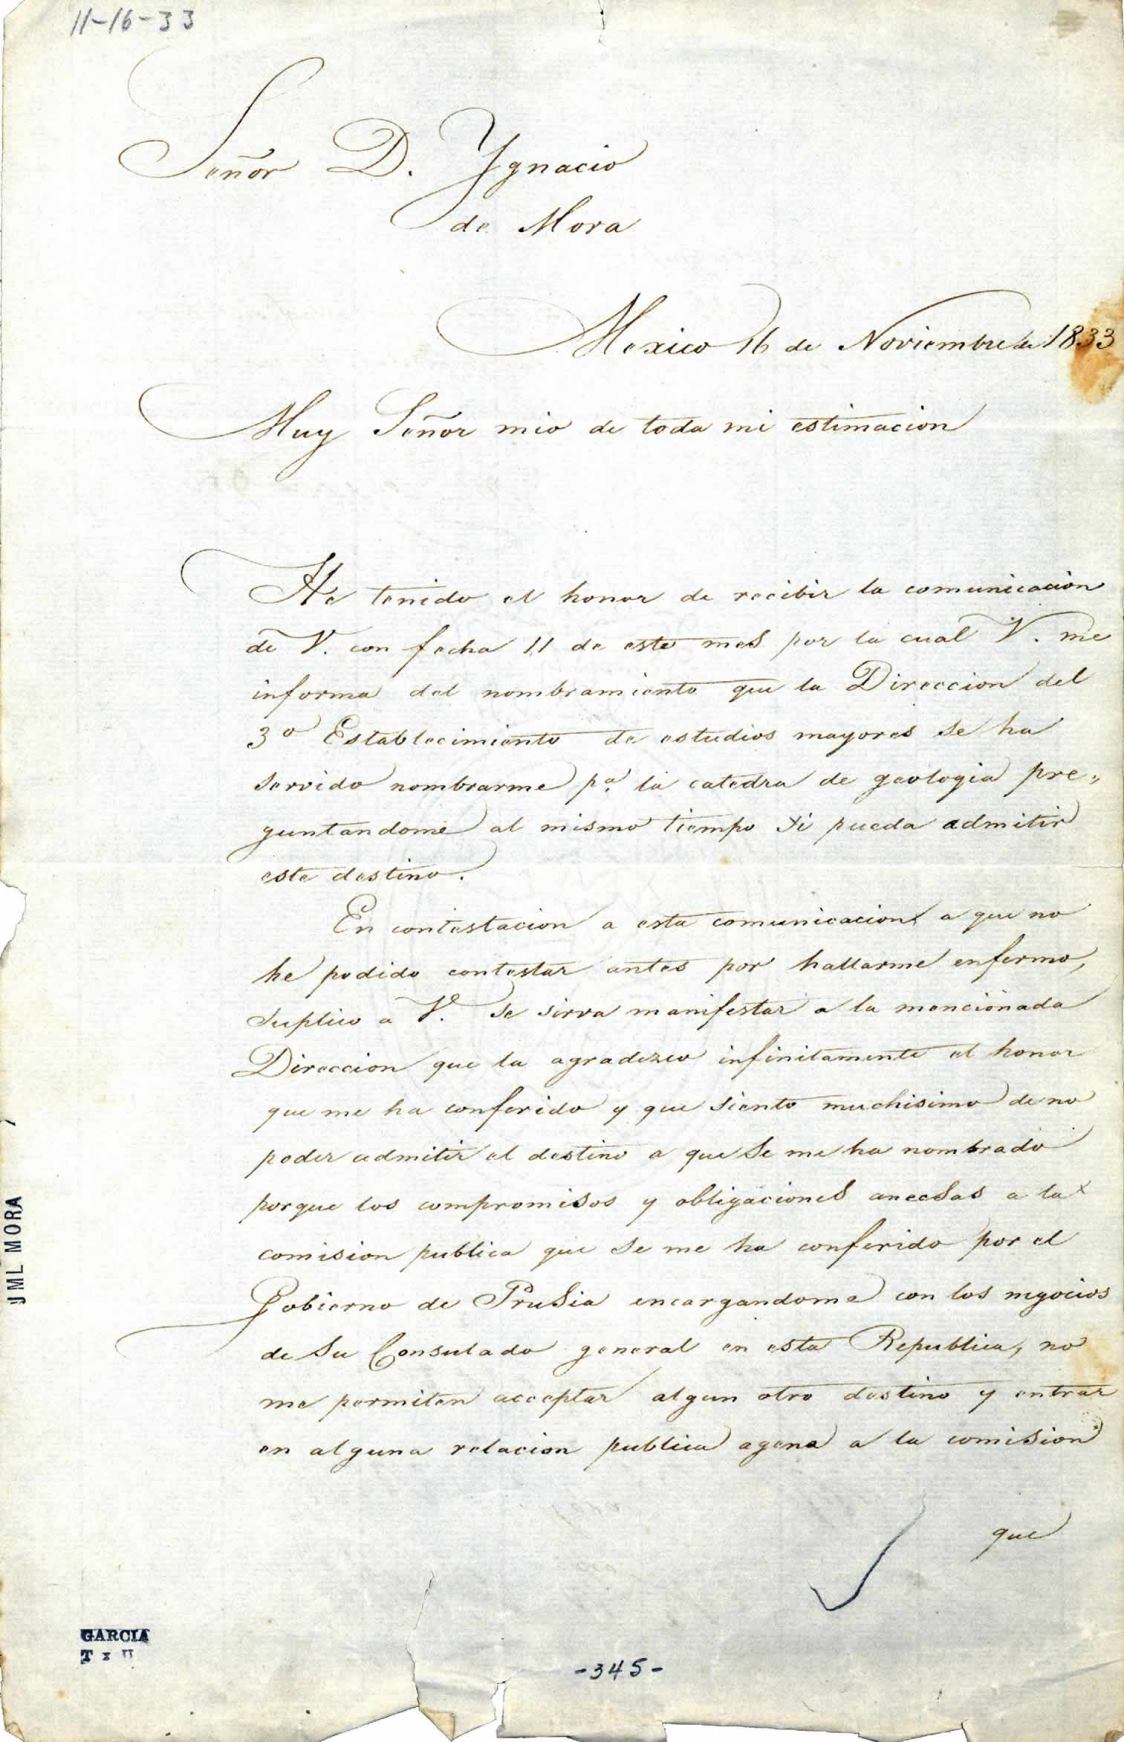 11-16-33
Señor D. Ygnacio
de Mora
Mexico 16 de Noviembre de 1833
Muy Señor mio de toda mi estimacion
He tenido el honor de recibir la comunicacion
de V. con fecha 11 de este mes por la cual V. me
informa del nombramiento que la Direccion del
3º Establecimiento de estudios mayores se ha
servido nombrarme pª. la catedra de geologia pre„
guntandome al mismo tiempo si pueda admitir
este destino.
En contestacion a esta comunicacion a que no
he podido contestar antes por hallarme enfermo,
suplico a V. se sirva manifestar a la mencionada
Direccion que la agradezco infinitamente el honor
que me ha conferido y que siento muchisimo de no
poder admitir el destino a que se me ha nombrado
porque los compromisos y obligaciones anecsas a la
comision publica que se me ha conferido por el
Gobierno de Prusia encargandome con los negocios
de su Consulado general en esta Republica, no
me permiten acceptar algun otro destino y entrar
en alguna relacion publica agena a la comision
que
JML MORA
GARCIA
T x U
-345-